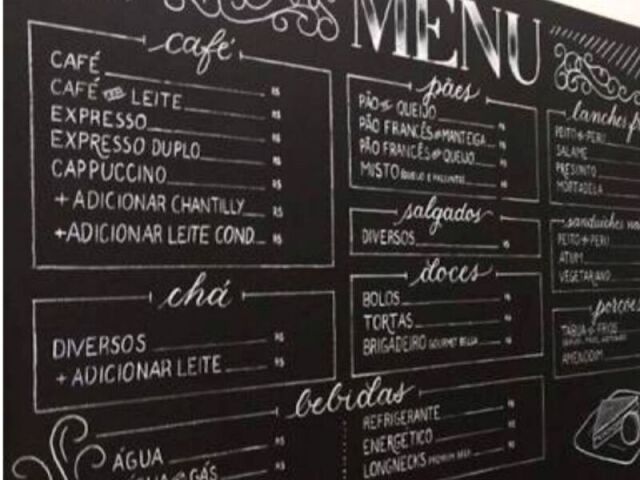 MENU
café
CAFÉ R$
CAFÉ COM LEITE R$
EXPRESSO R$
EXPRESSO DUPLO R$
CAPPUCCINO R$
+ ADICIONAR CHANTILLY R$
+ ADICIONAR LEITE COND. R$
chá
DIVERSOS R$
+ ADICIONAR LEITE R$
pães
PÃO DE QUEIJO R$
PÃO FRANCÊS COM MANTEIGA R$
PÃO FRANCÊS COM QUEIJO R$
MISTO R$
salgados
DIVERSOS R$
doces
BOLOS R$
TORTAS R$
BRIGADEIRO GOURMET R$
bebidas
ÁGUA R$
GÁS R$
REFRIGERANTE R$
ENERGÉTICO R$
LONGNECKS PREMIUM BEER R$
lanches
PEITO DE PERU
SALAME
PRESUNTO
MORTADELA
sanduiches
PEITO DE PERU
ATUM
VEGETARIANO
TÁBUA DE FRIOS
AMENDOIM